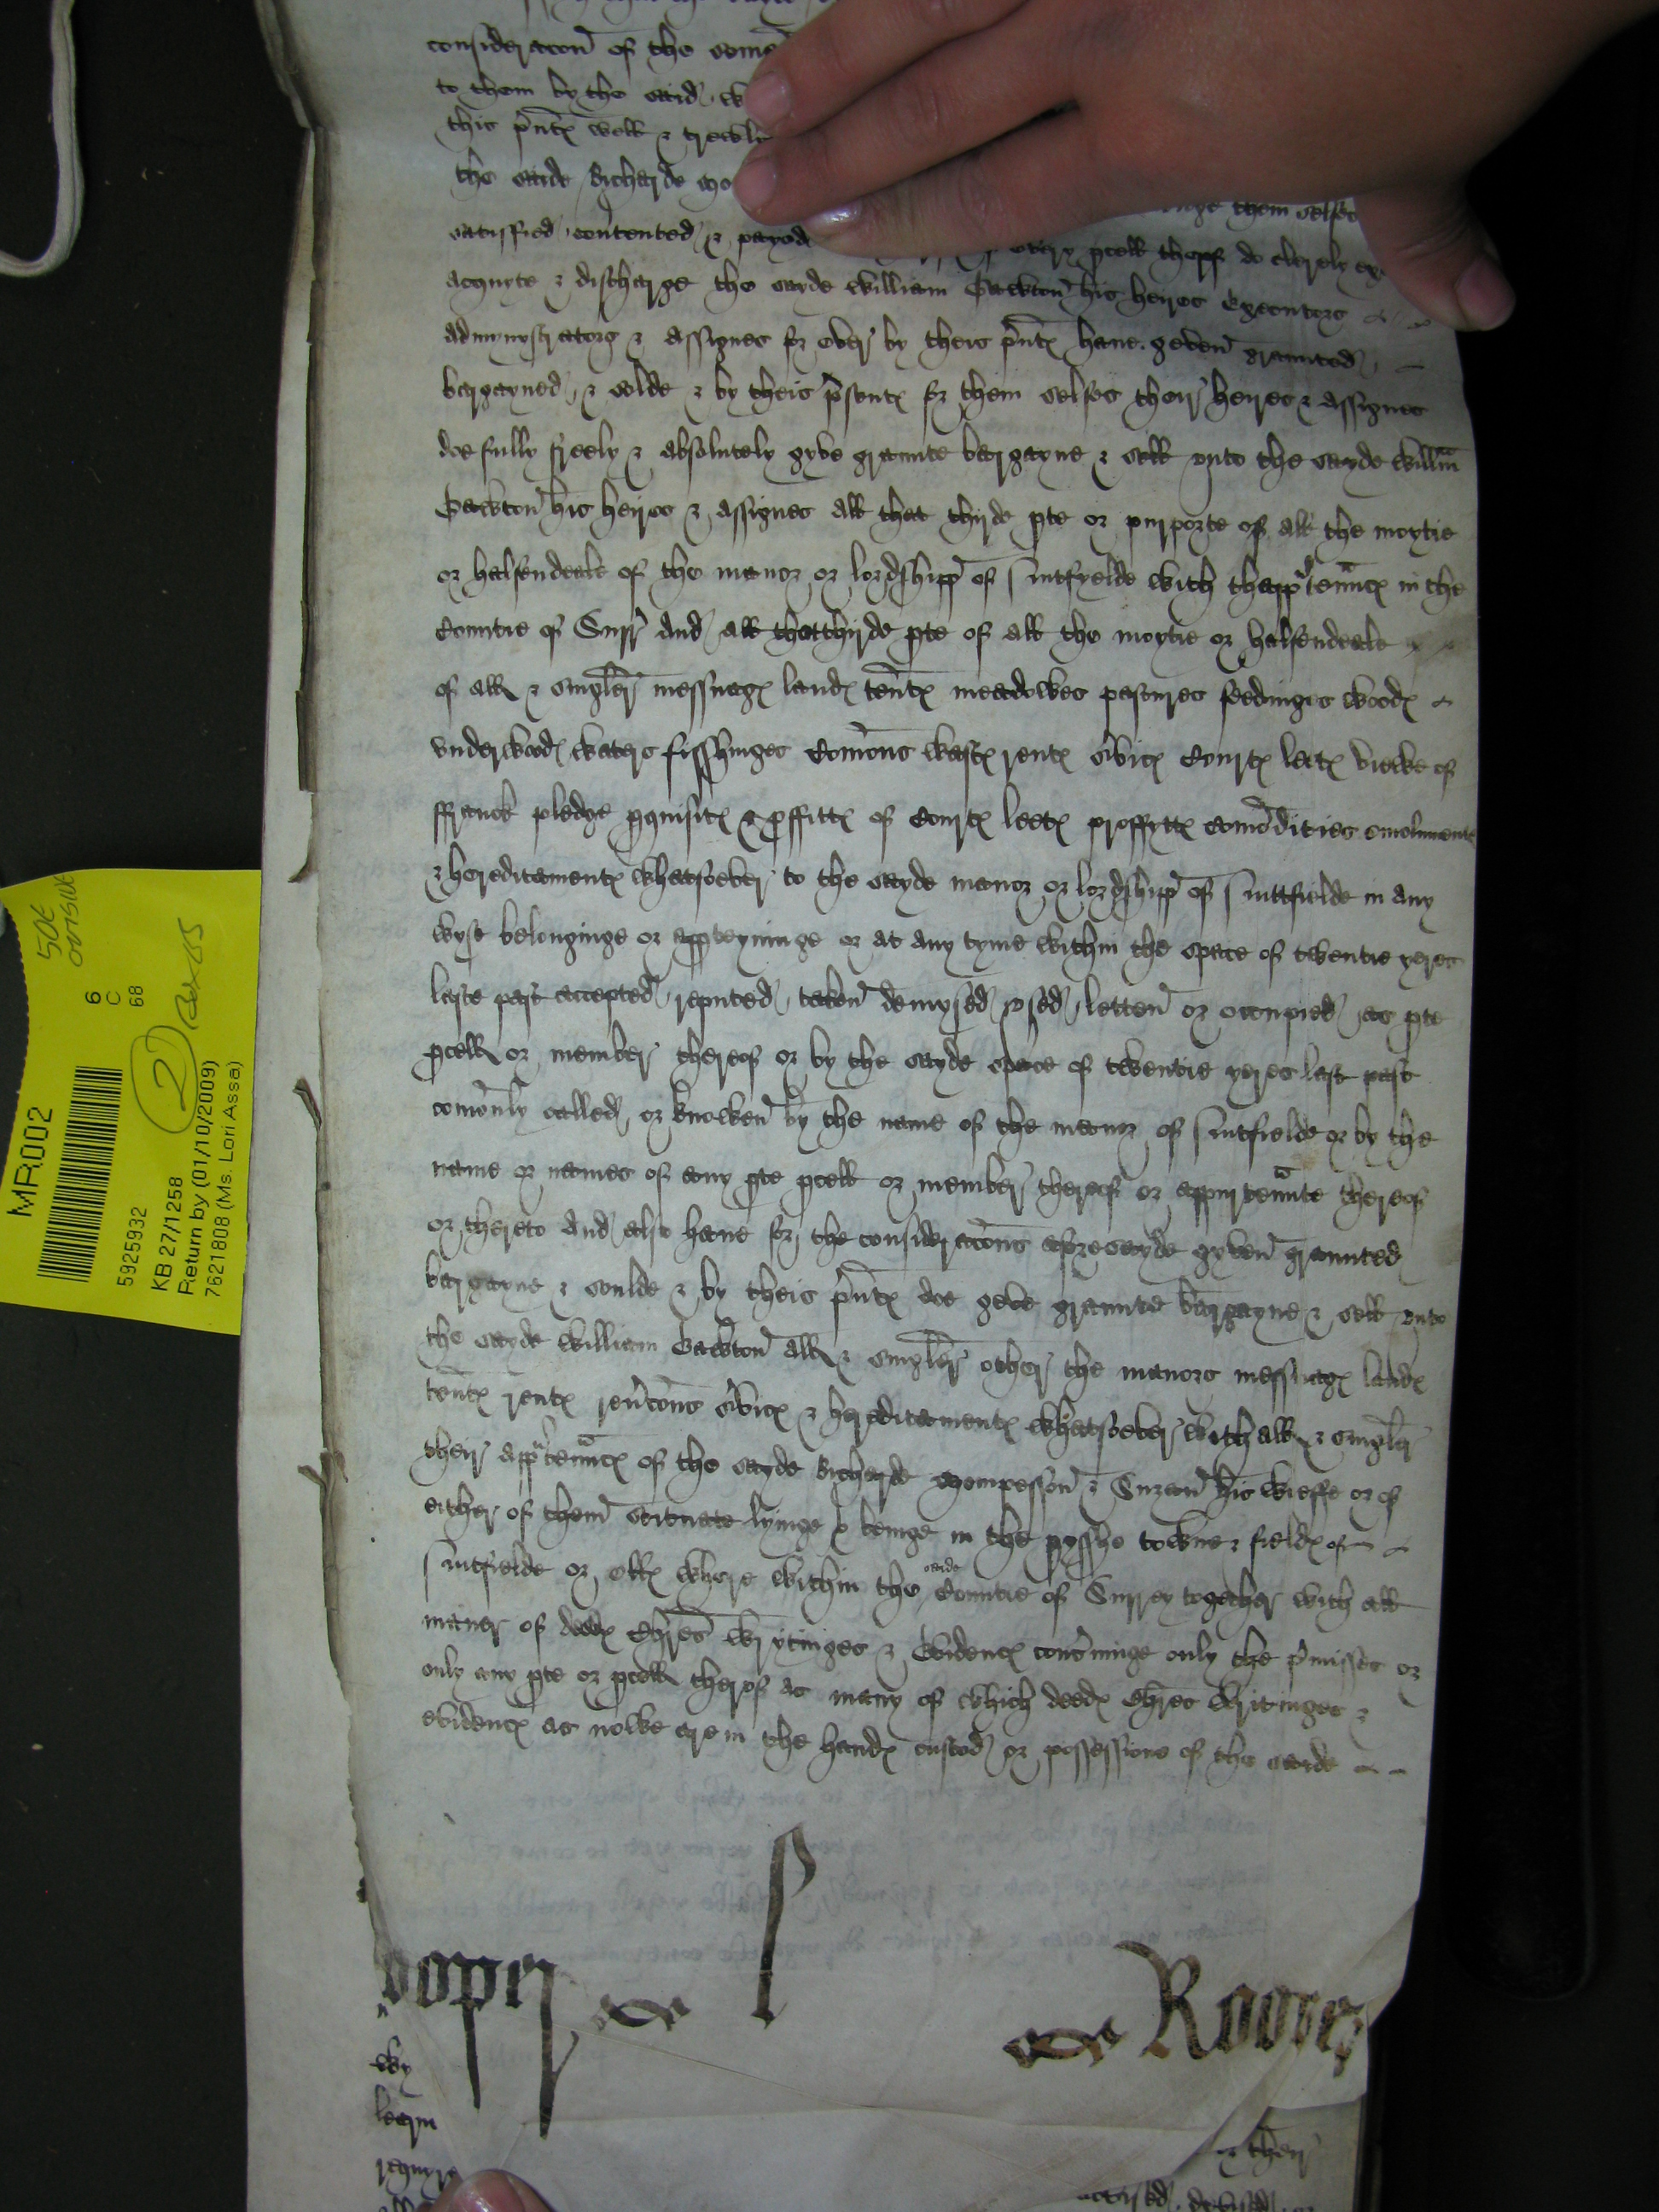 consideracon of the some
to them by the said w
this pntx well & trewly
the saide Richarde
them selfes
satisfied contented & payed
every pcell therof do clerely
acquyte & discharge the sayde William Gawton his heires executors
admynystrators & assignes for ever by theis pntx have geven graunted
bargayned & solde & by theis psentx for them selfes their heires & assignes
doe fully freely & absolutely gyve graunte bargayne & sell unto the sayde Willm
Gawton his heires & assignes all that thirde pte or purporte of all the moytie
or halfendeale of the manor or lordshipp of Flintfyelde with thappurtenncx in the
Countie of Surr And all that thirde pte of all the moytie or halfendeale
of all & singler messuagx landx tentx meadowes pastures feedinges woodx
underwoodx waters fisshinges Comons wastx rentx servicx Courtx leetx viewe of
ffranck pledge pquisitx & proffittx of Courtx leetx proffyttx comodities emolumentx
& hereditamentx whatsoever to the sayde manor or lordshipp of Flintfielde in any
wyse belonginge or appteyninge or at any tyme within the space of twentie yeres
laste past accepted reputed taken demysed used letten or occupied as pte
pcell or member thereof or by the sayde space of twentie yeres last past
comonly called or knowen by the name of the manor of Flintfielde or by the
name or names of any pte pcell or member thereof or appurtennte thereof
or thereto And also have for the consideracons aforesayde gyven graunted
bargayne & soulde & by theis pntx doe geve graunte bargayne & sell unto
the sayde William Gawton all & singler other the manors messuagx landx
tentx rentx revcons servicx & hereditamentx whatsoever with all & singler
their appurtenncx of the sayde Richarde Thompesson & Suzan his wieffe or of
either of them scituate lyinge & beinge in the pisshe towne & fieldx of
Flintfielde or ells where within the saide Countie of Surrey together with all
maner of deedx Chres wrytinges & evidencx concninge only the pmisses or
only any pte or pcell therof as many of which deedx Chres writinges &
evidencx as nowe are in the handx custod or possessions of the sayde
Roper
wy
learn
requyre
& their
MR002
5925932
KB 27/1258
Return by (01/10/2009)
7621808 (Ms. Lori Assa)
6
C
68
50E
OUTSIZE
2